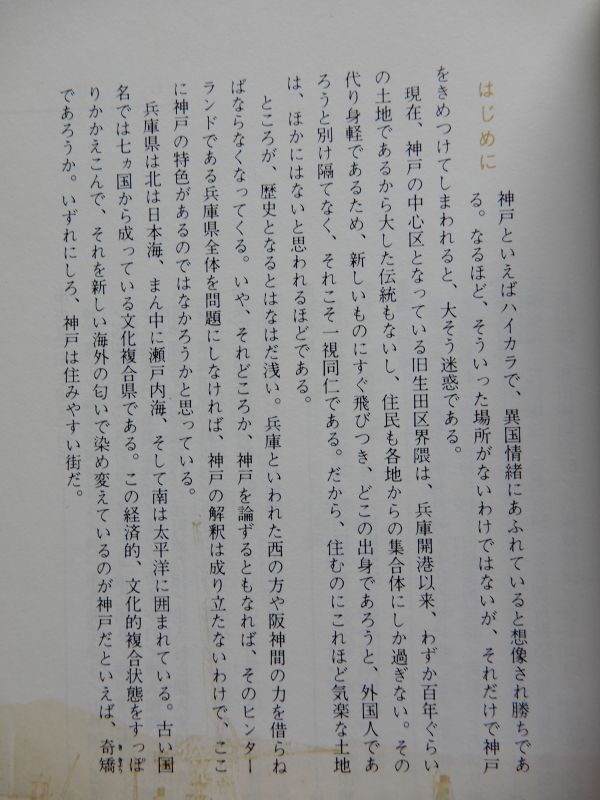 はじめに
神戸といえばハイカラで、異国情緒にあふれていると想像され勝ちであ
る。なるほど、そういった場所がないわけではないが、それだけで神戸
をきめつけてしまわれると、大そう迷惑である。
現在、神戸の中心区となっている旧生田区界隈は、兵庫開港以来、わずか百年ぐらい
の土地であるから大した伝統もないし、住民も各地からの集合体にしか過ぎない。その
代り身軽であるため、新しいものにすぐ飛びつき、どこの出身であろうと、外国人であ
ろうと別け隔てなく、それこそ一視同仁である。だから、住むのにこれほど気楽な土地
は、ほかにはないと思われるほどである。
ところが、歴史となるとはなはだ浅い。兵庫といわれた西の方や阪神間の力を借らね
ばならなくなってくる。いや、それどころか、神戸を論ずるともなれば、そのヒンター
ランドである兵庫県全体を問題にしなければ、神戸の解釈は成り立たないわけで、ここ
に神戸の特色があるのではなかろうかと思っている。
兵庫県は北は日本海、まん中に瀬戸内海、そして南は太平洋に囲まれている。古い国
名では七ヵ国から成っている文化複合県である。この経済的、文化的複合状態をすっぽ
りかかえこんで、それを新しい海外の匂いで染め変えているのが神戸だといえば、奇矯
であろうか。いずれにしろ、神戸は住みやすい街だ。